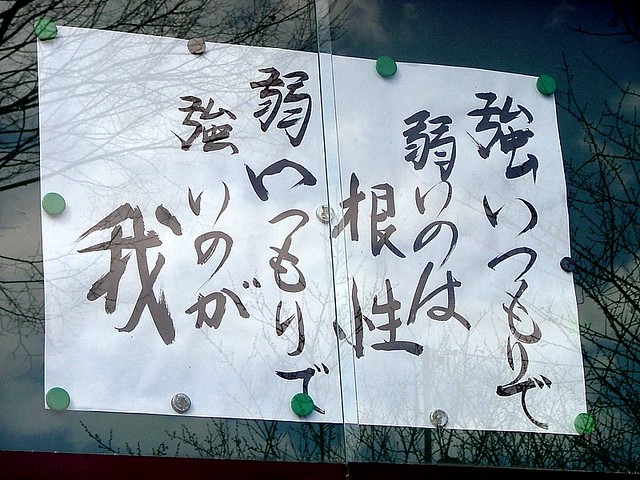 強いつもりで
弱いのは
根性
弱いつもりで
強いのが
我